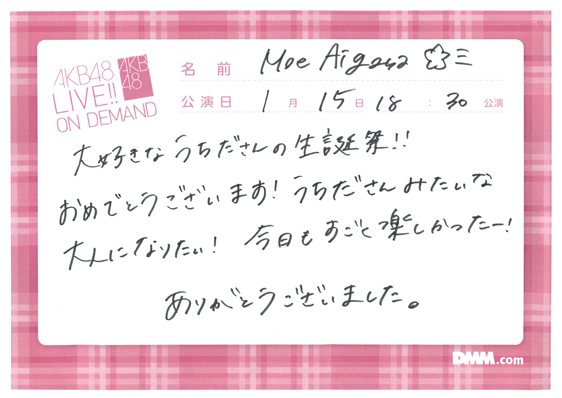 AKB48
LIVE!!
ON DEMAND
AKB
48
名 前 Moe Aigasa
公演日 1月 15日 18:30 公演
大好きな うちださんの生誕祭!!
おめでとうございます! うちださんみたいな
大人になりたい! 今日もすごく楽しかったー!
ありがとうございました。
DMM.com